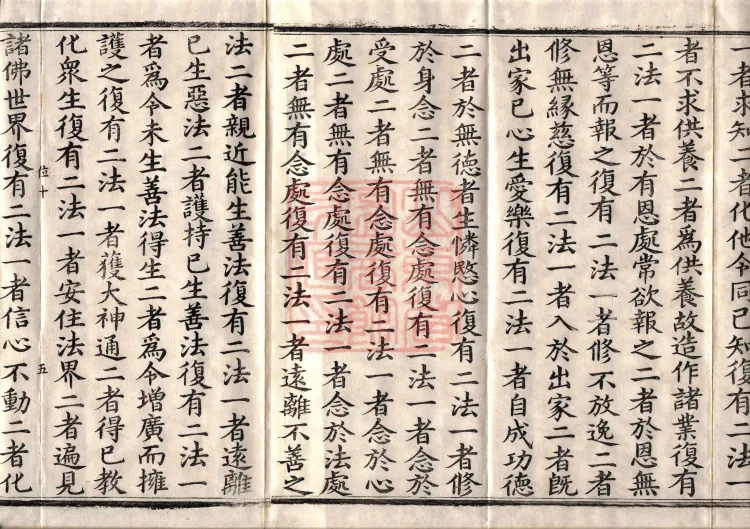 一者求知二者化他令同己知復有二法一
者不求供養二者爲供養故造作諸業復有
二法一者於有恩處常欲報之二者於恩無
恩等而報之復有二法一者修不放逸二者
修無緣慈復有二法一者入於出家二者旣
出家已心生愛樂復有二法一者自成功德
二者於無德者生憐愍心復有二法一者修
於身念二者無有念處復有二法一者念於
受處二者無有念處復有二法一者念於心
處二者無有念處復有二法一者念於法處
二者無有念處復有二法一者遠離不善之
法二者親近能生善法復有二法一者遠離
已生惡法二者護持已生善法復有二法一
者爲令未生善法得生二者爲令增廣而擁
護之復有二法一者獲大神通二者得已教
化衆生復有二法一者安住法界二者遍見
位十 五
諸佛世界復有二法一者信心不動二者化